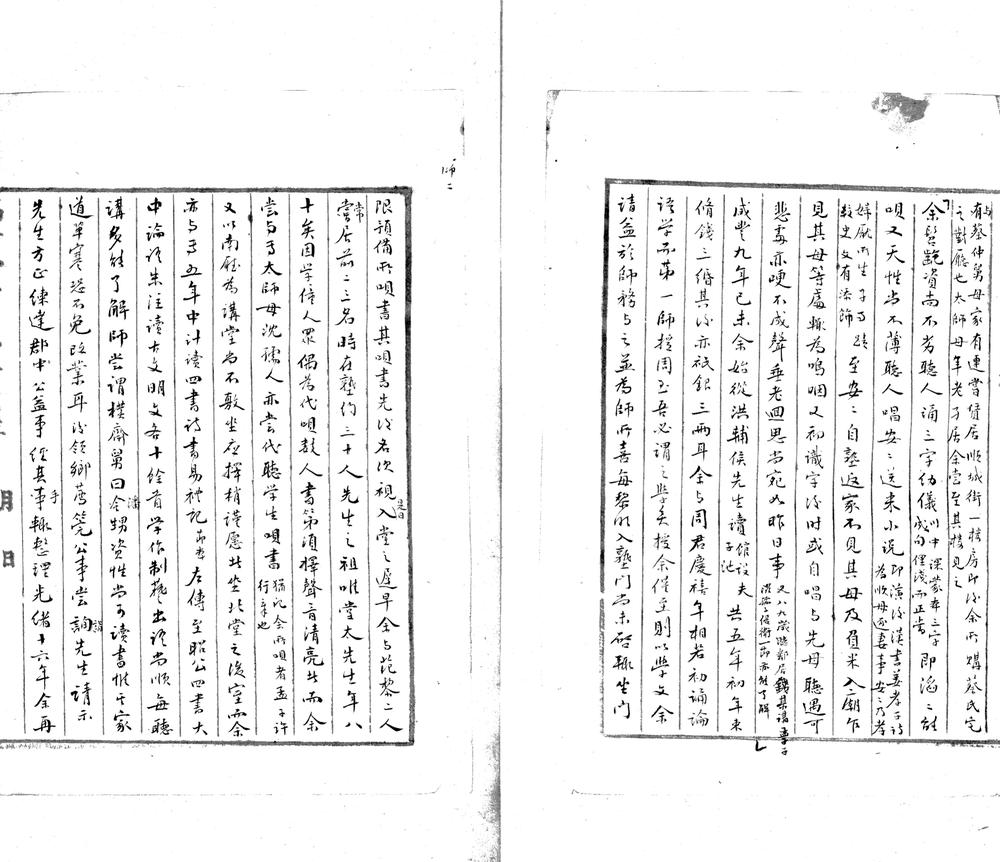 有蔡仲舅母家有連嘗賃居順城街一接房即後余所購蔡氏宅
之對廳也太師母年老子居余嘗至其接見之
余髫齔資尚不劣聽人誦三字幼儀訓中即滔滔能
唄又天性尚不薄聽人唱安安送米小說
即演後漢書姜孝子詩
婦
為收母出妻事安安乃孝
故史文有添飾
至安安自塾返家不見其母及負米入廟乍
見其母等處輒為嗚咽又初識字後時或自唱與先母聽遇可
悲處亦哽不成聲垂老回思尚宛如昨日事
又八九歲時鄰居
咸豐九年己未余始從洪輔侯先生讀
館設夫
子池
共五年初年束
脩錢三緡其後亦祇銀三兩耳余與周君慶禧年相若初誦論
語學而第一師授周玉吾必謂之學矣授余僅至則以學文余
請益於師務與之並為師所喜每黎明入塾門尚未啓輒坐門
師二
限預備所唄書其唄書先後名次視是日入堂之遲早余與範黎二人
常居前二三名時在塾約三十人先生之祖唯堂太先生年八
十矣因學侍人眾偶為代唄鼓人書第須擇聲音清亮此而余
嘗與焉太師母沈孺人亦嘗代聽學生唄書
猶記余所唄者孟子許
行章也
又以南廳為講堂尚不敷坐應擇稍謹愿此坐北堂之後室而余
亦與焉五年中計讀四書詩書易禮記
節本
左傳至昭公四書大
中論語朱注讀古文明文各十餘首學作制藝出語尚順每聽
講多能了解師嘗謂樸齋舅曰令甥潘資性尚可讀書惟其家
道單寒恐不免改業耳後領鄉薦筦公事嘗詣詢先生請示
先生方正練達郡中公益事經其手事輒整理光緒十六年余再